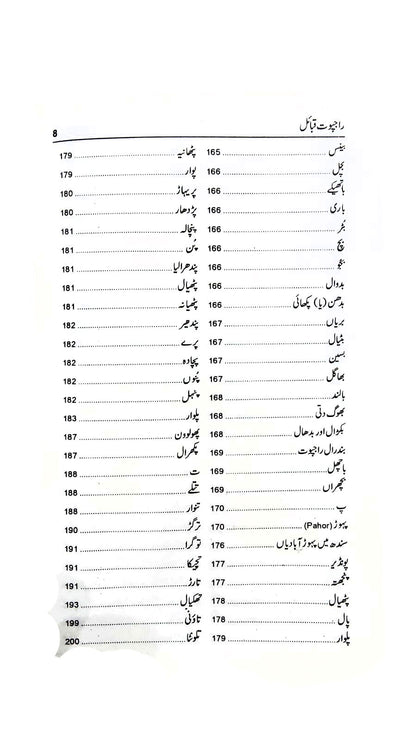 راجپوت قبائل
8
بینس 165
بجل 166
باٹھیکے 166
باری 166
بگر 166
بچ 166
بجو 166
بدوال 166
بدھن (یا) پکھائی 166
بریاں 167
بٹیال 167
بسین 167
بھاگل 167
بالند 168
بھوگ دتی 168
بکڑال اور بدھال 168
بندرال راجپوت 169
باچھل 169
بکھراں 169
پ 170
پہوڑ (Pahor) 170
سندھ میں پہوڑ آبادیاں 176
پونڈیر 177
پنجھتہ 177
پٹھیال 178
پال 178
پلوار 179
پٹھانیہ 179
پوار 179
پریہاڑ 180
پڑدھار 180
پنچالہ 181
پن 181
پندھرالیا 181
پٹھیال 181
پٹھیانہ 181
پندھیر 182
پرے 182
پچادہ 182
پنوں 182
پنہل 182
پلوار 183
پھولوون 187
پکھرال 187
ت 188
تھلے 188
تنوار 188
ترگڑ 190
توگرا 191
تجیکا 191
تارڑ 191
تھکیال 193
تاؤنی 199
تلوئٹا 200